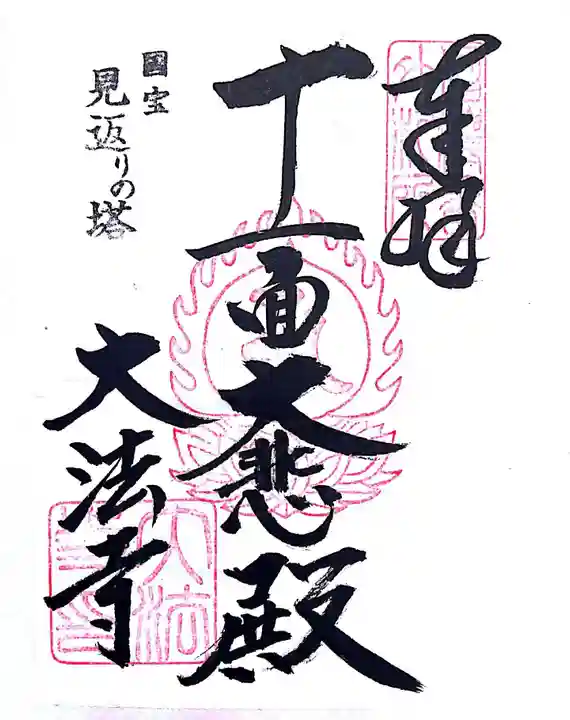 奉拝
十一面大悲殿
国宝
見返りの塔
大法寺